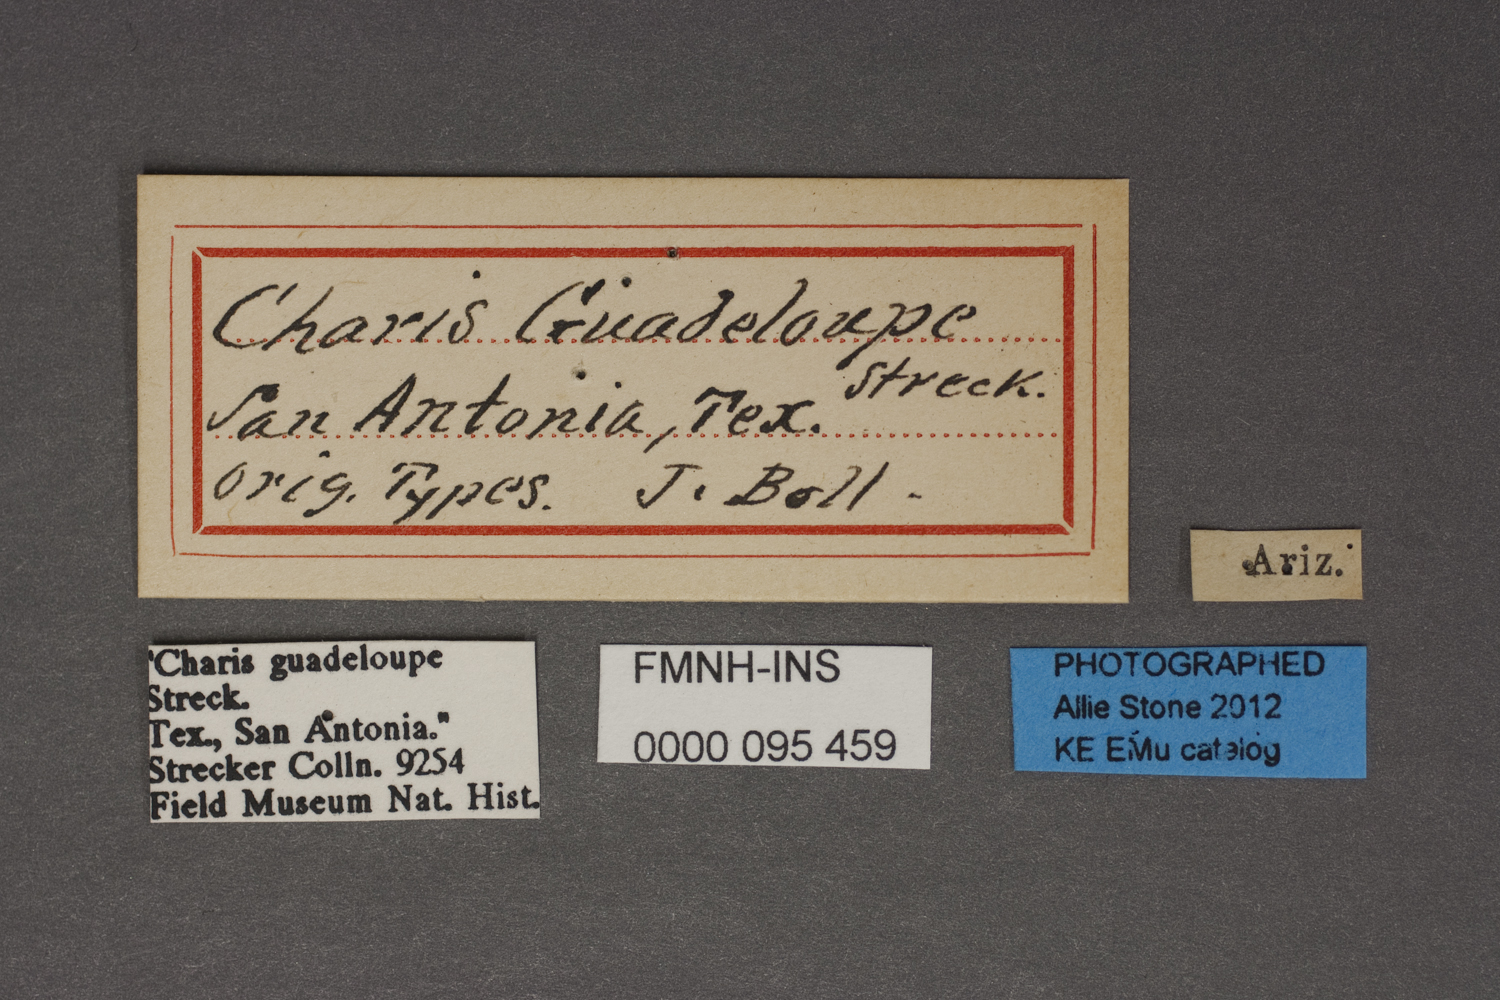 Charis Guadeloupe
Streck.
San Antonia, Tex.
Orig. Types. J. Boll.
Ariz.
"Charis guadeloupe
Streck.
Tex., San Antonia."
Strecker Colln. 9254
Field Museum Nat. Hist.
FMNH-INS
0000 095 459
PHOTOGRAPHED
Allie Stone 2012
KE EMu catalog